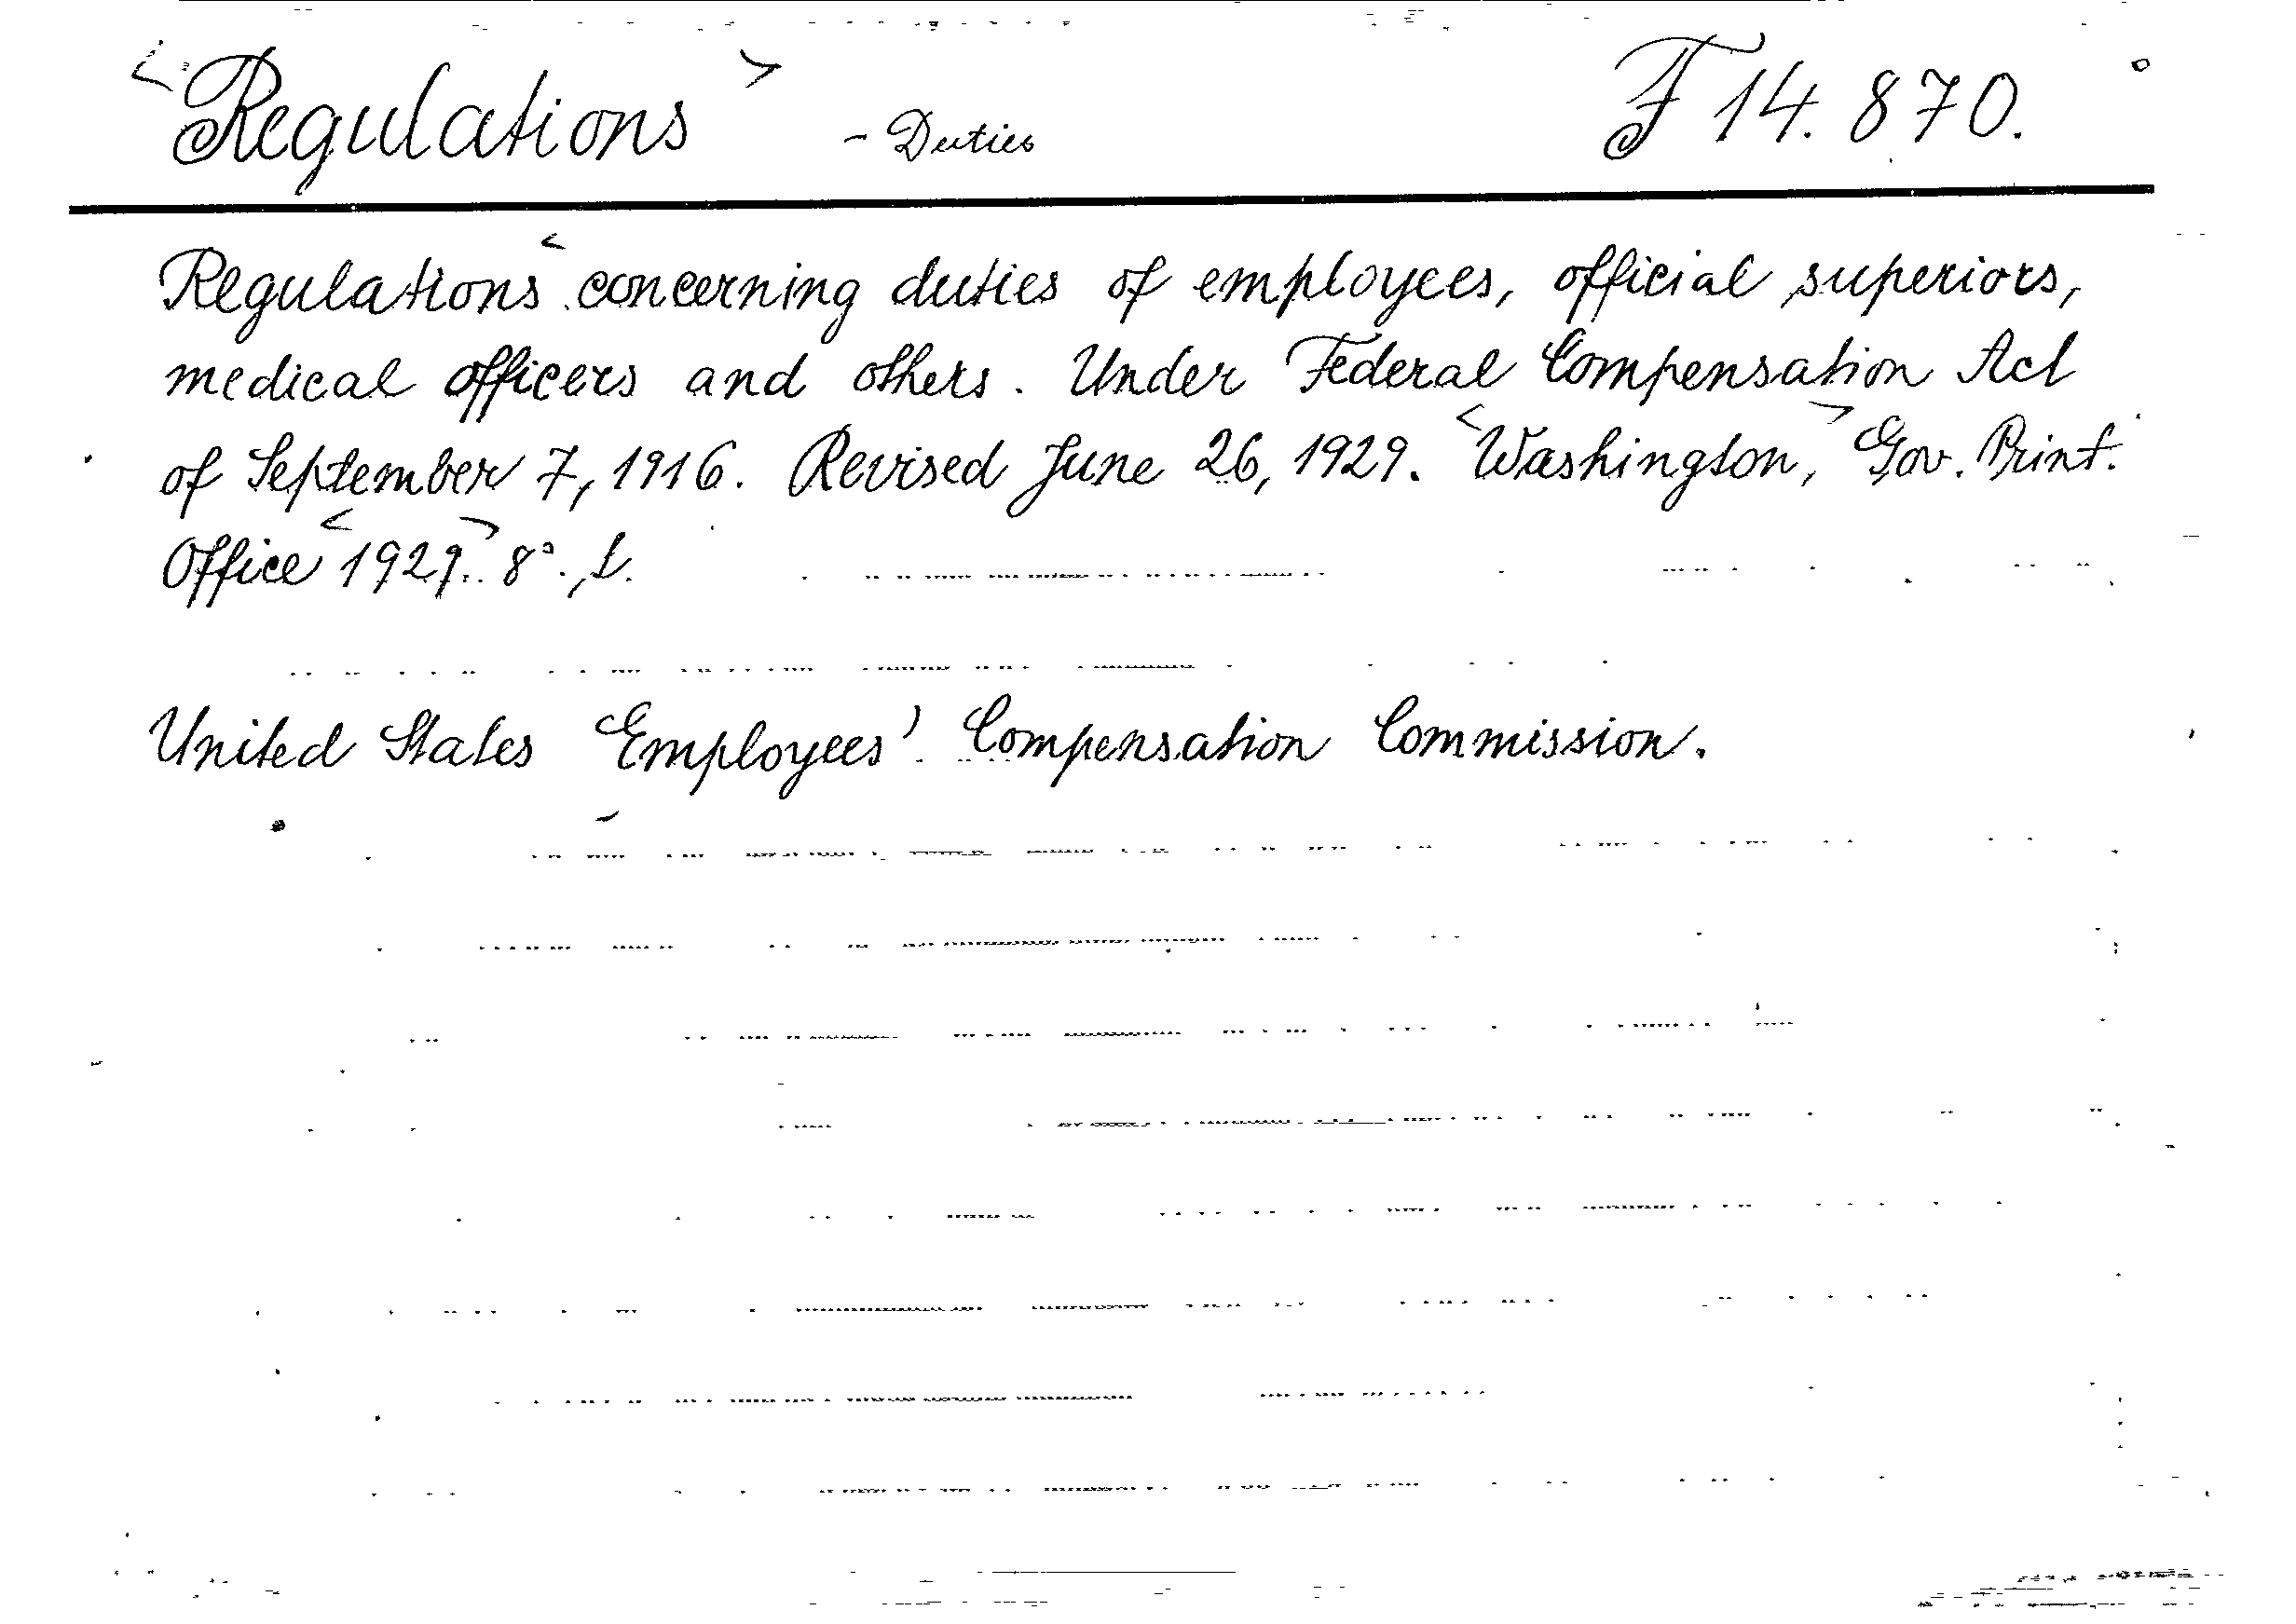 <Regulations> - Duties F 14.870.
Regulations <concerning duties of employees, official superiors,
medical officers and others. Under Federal Compensation Act
of September 7, 1916. Revised June 26, 1929. <Washington,> Gov. Print.
Office <1929.> 8°.
United States Employees' Compensation Commission.